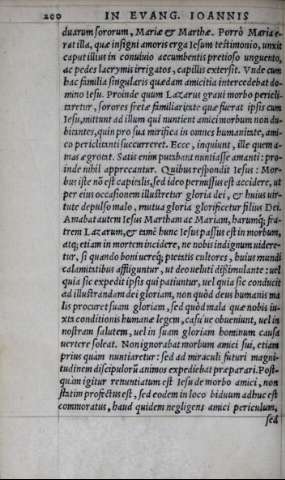 200 IN EVANG. IOANNIS
duarum sororum, Mariæ & Marthæ. Porrò Maria e-
rat illa, quæ insigni amoris erga Iesum testimonio, unxit
caput illius in conuiuio accumbentis pretioso unguento,
ac pedes lacrymis irrigatos, capillis extersit. Vnde cum
hac familia singularis quædam amicitia intercedebat do-
mino Iesu. Proinde quum Lazarus graui morbo pericli-
taretur, sorores fretæ familiaritate quæ fuerat ipsis cum
Iesu, mittunt ad illum qui nuntient amici morbum non du-
bitantes, quin pro sua mirifica in omnes humanitate, ami-
co periclitanti succurreret. Ecce, inquiunt, ille quem a-
mas ægrotat. Satis enim putabant nuntiasse amanti: pro-
inde nihil apprecantur. Quibus respondit Iesus: Mor-
bus iste nō est capitalis, sed ideo permissus est accidere, ut
per eius occasionem illustretur gloria dei, & huius uir-
tute depulso malo, mutua gloria glorificetur filius Dei.
Amabat autem Iesus Martham ac Mariam, harumq́; fra-
trem Lazarum, & tamē hunc Iesus passus est in morbum,
atq; etiam in mortem incidere, ne nobis indignum uidere-
tur, si quando boni uereq́; pietatis cultores, huius mundi
calamitatibus affliguntur, ut deo ueluti dissimulante: uel
quia sic expedit ipsis qui patiuntur, uel quia sic conducit
ad illustrandam dei gloriam, non quòd deus humanis ma
lis procuret suam gloriam, sed quòd mala quæ nobis iu-
xta conditionis humanæ legem, casu ue obueniunt, uel in
nostram salutem, uel in suam gloriam hominum causa
uertere soleat. Non ignorabat morbum amici sui, etiam
prius quàm nuntiaretur: sed ad miraculi futuri magni-
tudinem discipulorū animos expediebat præparari. Post-
quàm igitur renuntiatum est Iesu de morbo amici, non
statim profectus est, sed eodem in loco biduum adhuc est
commoratus, haud quidem negligens amici periculum,
sed